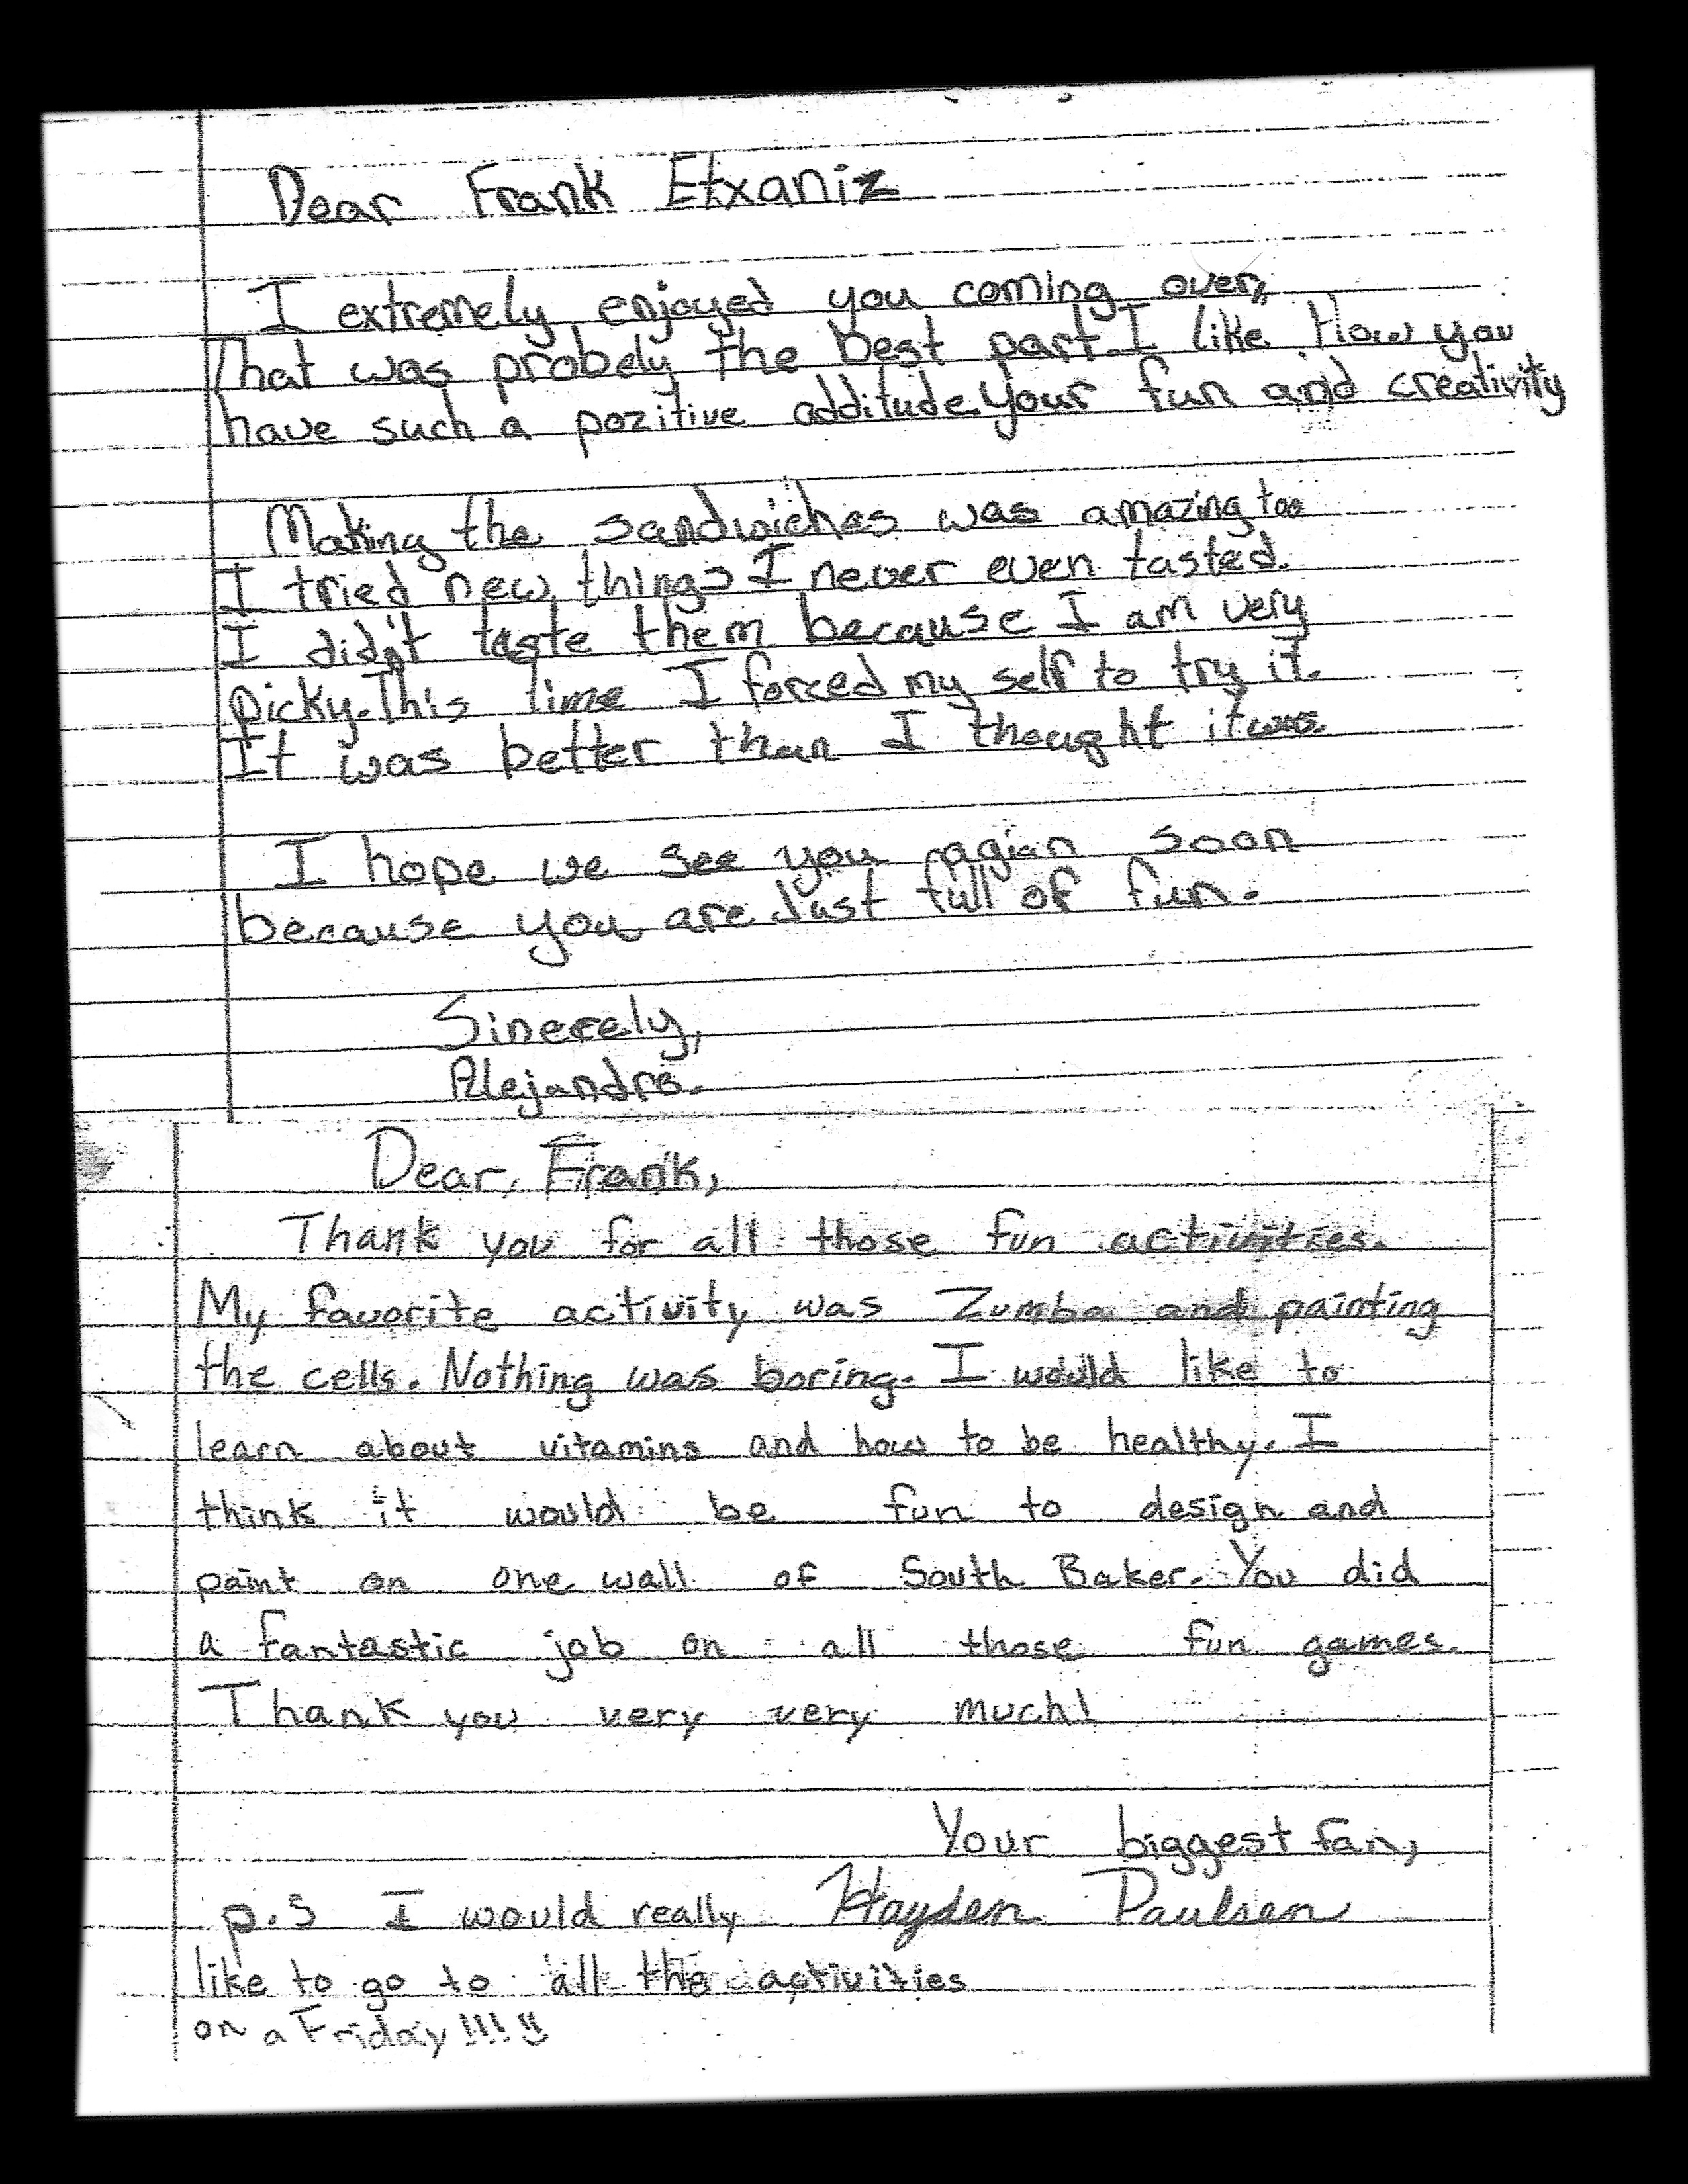 Dear Frank Etxaniz
I extremely enjoyed you coming over,
That was probely the best part. I like How you
have such a pozitive additude. Your fun and creativity
Making the sandwiches was amazing too
I tried new things I never even tasted.
I didn't taste them because I am very
picky. This time I forced my self to try it.
It was better than I thought it was.
I hope we see you agian soon
because you are Just full of fun.
Sincerely,
Alejandro.
Dear, Frank,
Thank you for all those fun activities.
My favorite activity was Zumba and painting
the cells. Nothing was boring. I would like to
learn about vitamins and how to be healthy. I
think it would be fun to design and
paint on one wall of South Baker. You did
a fantastic job on all those fun games.
Thank you very very much!
Your biggest fan,
Hayden Paulsen
p.s I would really
like to go to all the activities
on a Friday!!!!